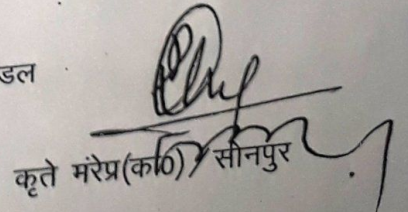 डल
कृते मंरेप्र(का0)/सोनपुर